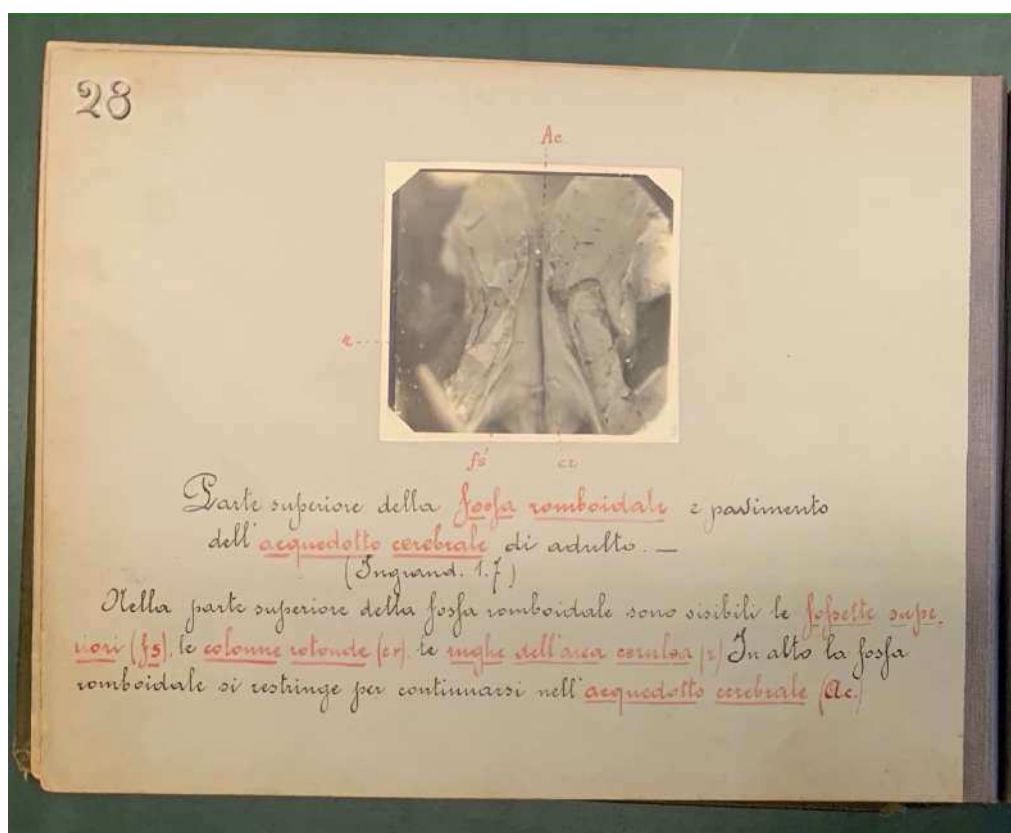 28
Ac.
r
fs
cr
Parte superiore della fossa romboidale e pavimento
dell'acquedotto cerebrale di adulto. —
(Ingrand. 1.7)
Nella parte superiore della fossa romboidale sono visibili le fossette supe-
riori (fs), le colonne rotonde (cr), le rughe dell'area cerulea (r) In alto la fossa
romboidale si restringe per continuarsi nell'acquedotto cerebrale (Ac.)